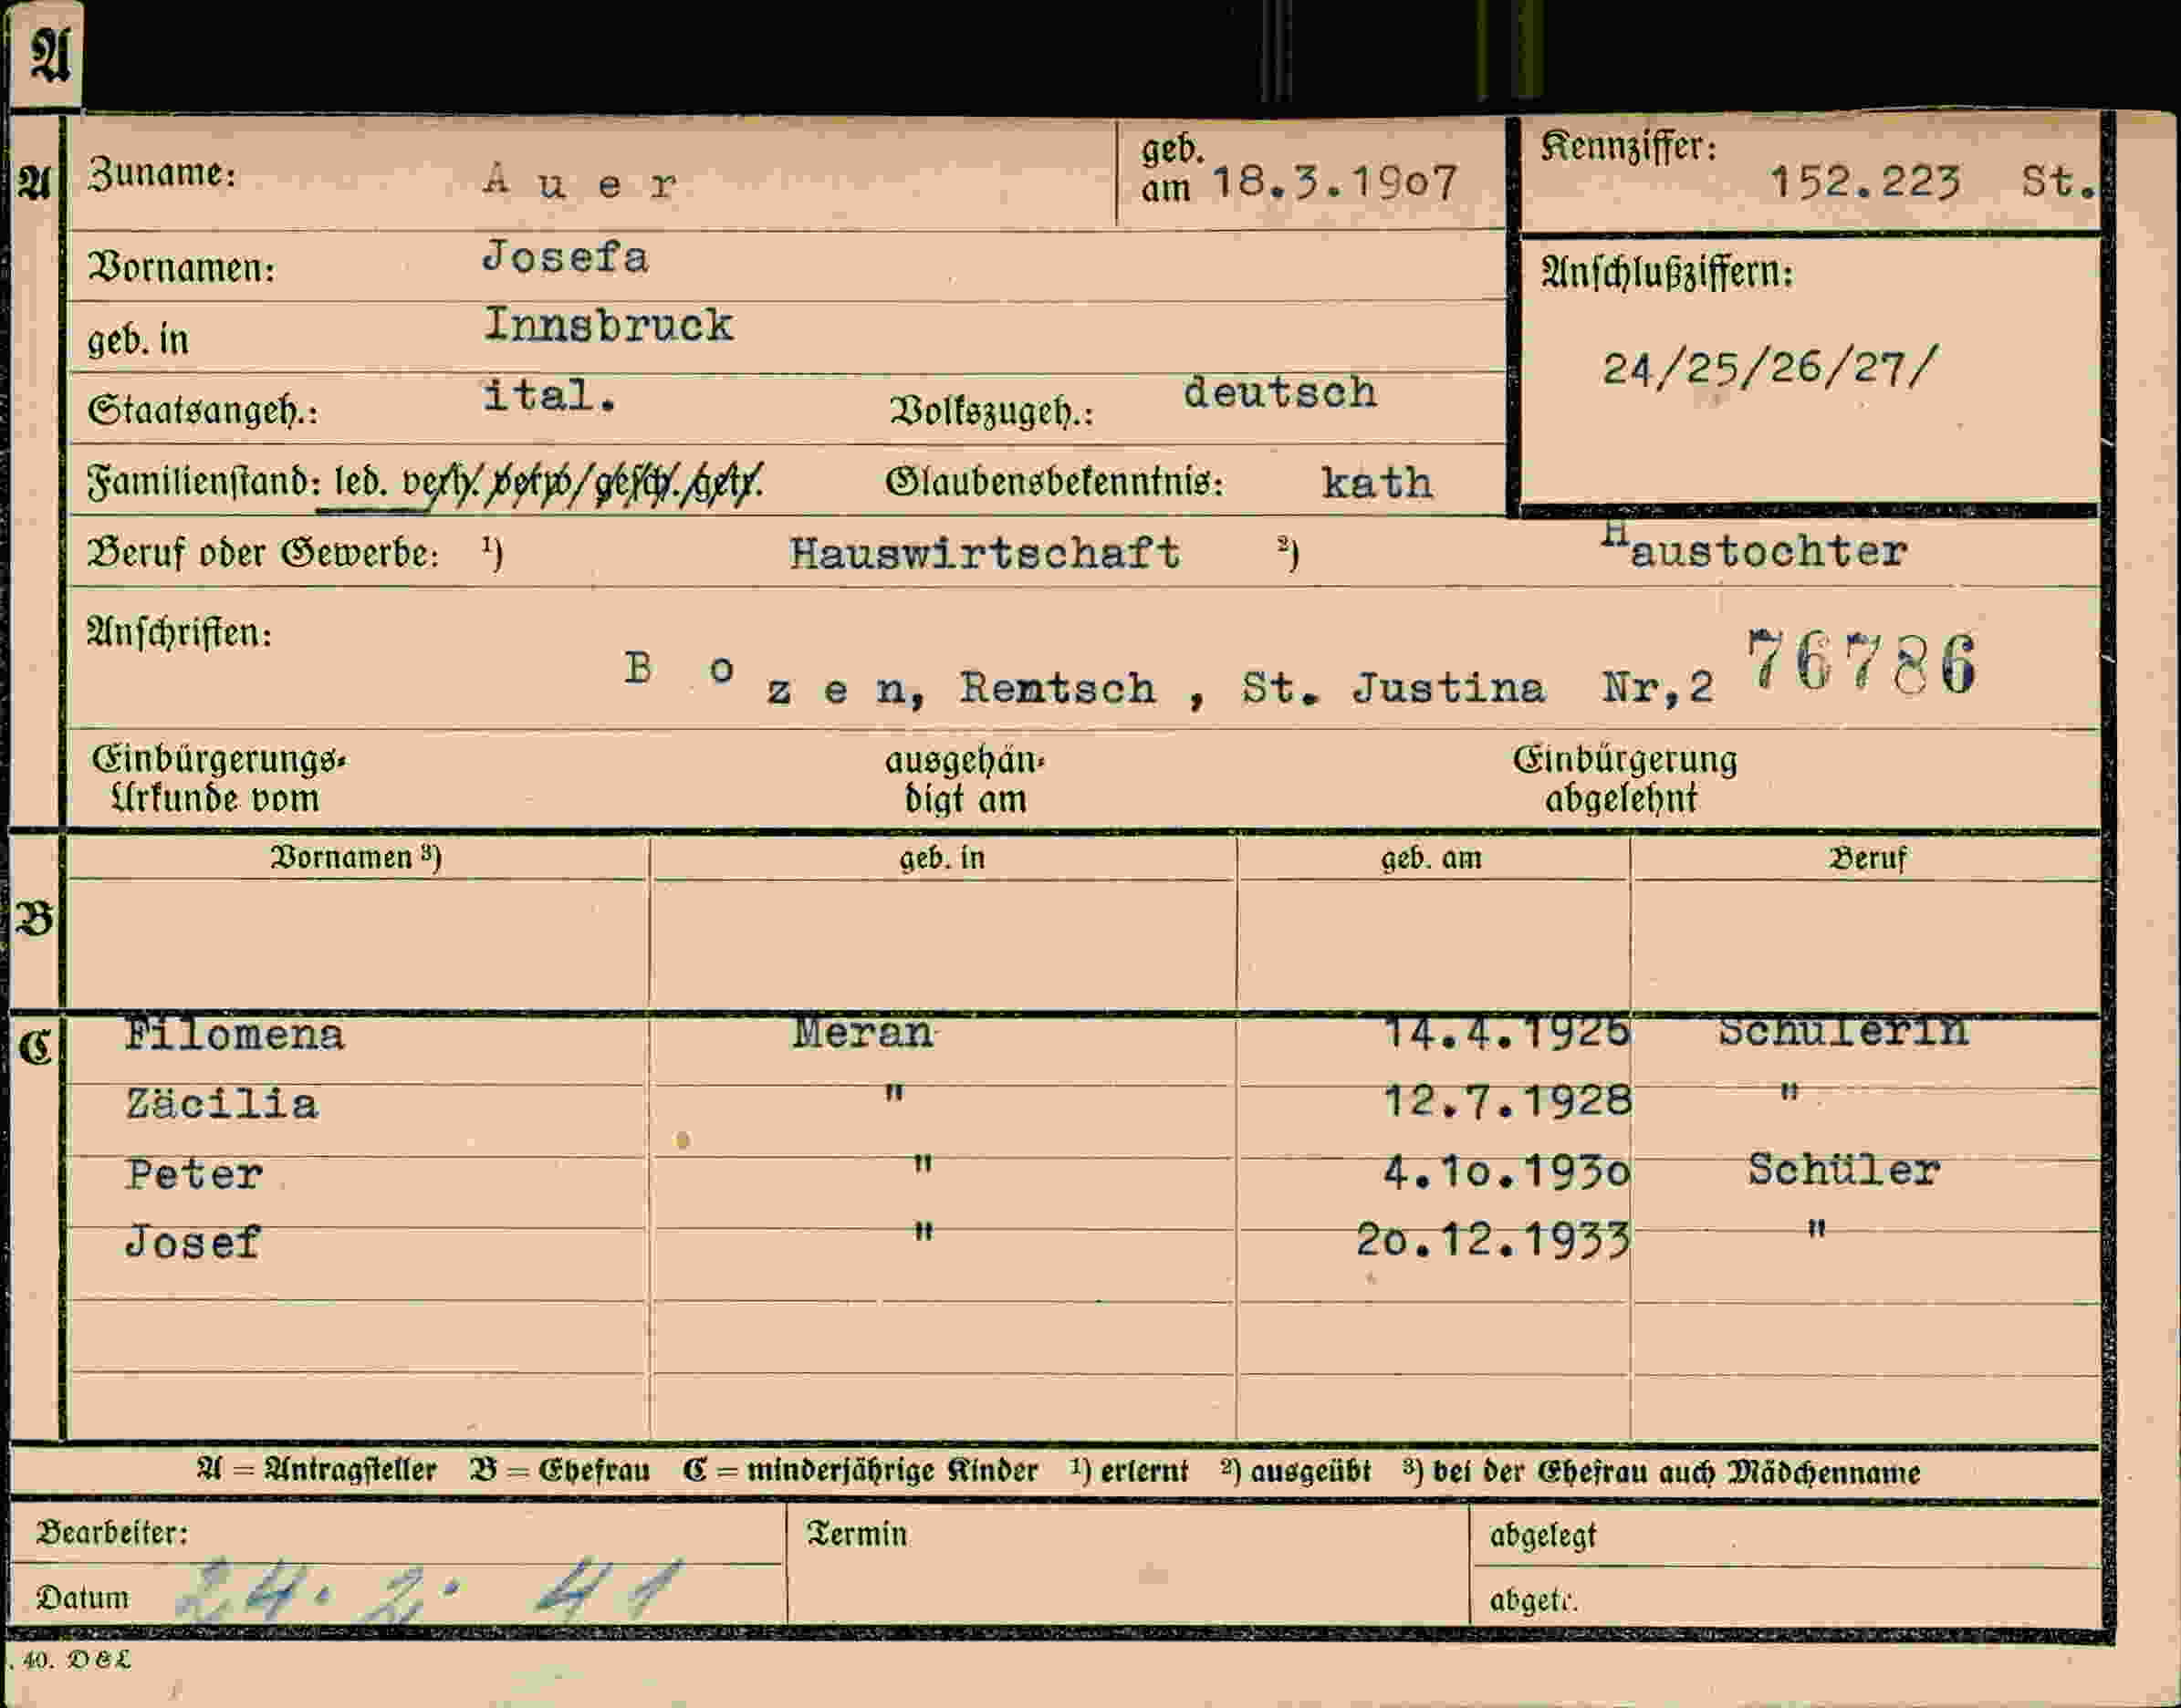 A
A Zuname: A u e r geb. am 18.3.19o7 Kennziffer: 152.223 St.
Vornamen: Josefa Anschlußziffern:
geb. in Innsbruck 24/25/26/27/
Staatsangeh.: ital. Volkszugeh.: deutsch
Familienstand: led. verh. verw. gesch. getr. Glaubensbekenntnis: kath
Beruf oder Gewerbe: ¹) Hauswirtschaft ²) Haustochter
Anschriften:
B o z e n, Rentsch , St. Justina Nr,2 76786
Einbürgerungs- Urkunde vom ausgehän- digt am Einbürgerung abgelehnt
B Vornamen ³) geb. in geb. am Beruf
C Filomena Meran 14.4.1926 Schülerin
Zäcilia " 12.7.1928 "
Peter " 4.1o.193o Schüler
Josef " 2o.12.1933 "
A = Antragsteller B = Ehefrau C = minderjährige Kinder ¹) erlernt ²) ausgeübt ³) bei der Ehefrau auch Mädchenname
Bearbeiter: Termin abgelegt
Datum 24. 2. 41 abgetr.
. 40. D & L